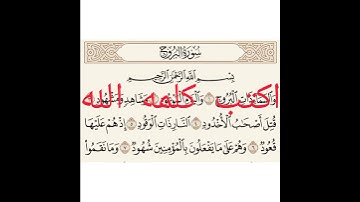 سُورَةُ البُرُوجِ
بِسْمِ اللَّهِ الرَّحْمَٰنِ الرَّحِيمِ
اكتب كلمه الله
وَالسَّمَاءِ ذَاتِ الْبُرُوجِ ۝ وَالْيَوْمِ الْمَوْعُودِ ۝ وَشَاهِدٍ وَمَشْهُودٍ ۝
قُتِلَ أَصْحَابُ الْأُخْدُودِ ۝ النَّارِ ذَاتِ الْوَقُودِ ۝ إِذْ هُمْ عَلَيْهَا
قُعُودٌ ۝ وَهُمْ عَلَىٰ مَا يَفْعَلُونَ بِالْمُؤْمِنِينَ شُهُودٌ ۝ وَمَا نَقَمُوا